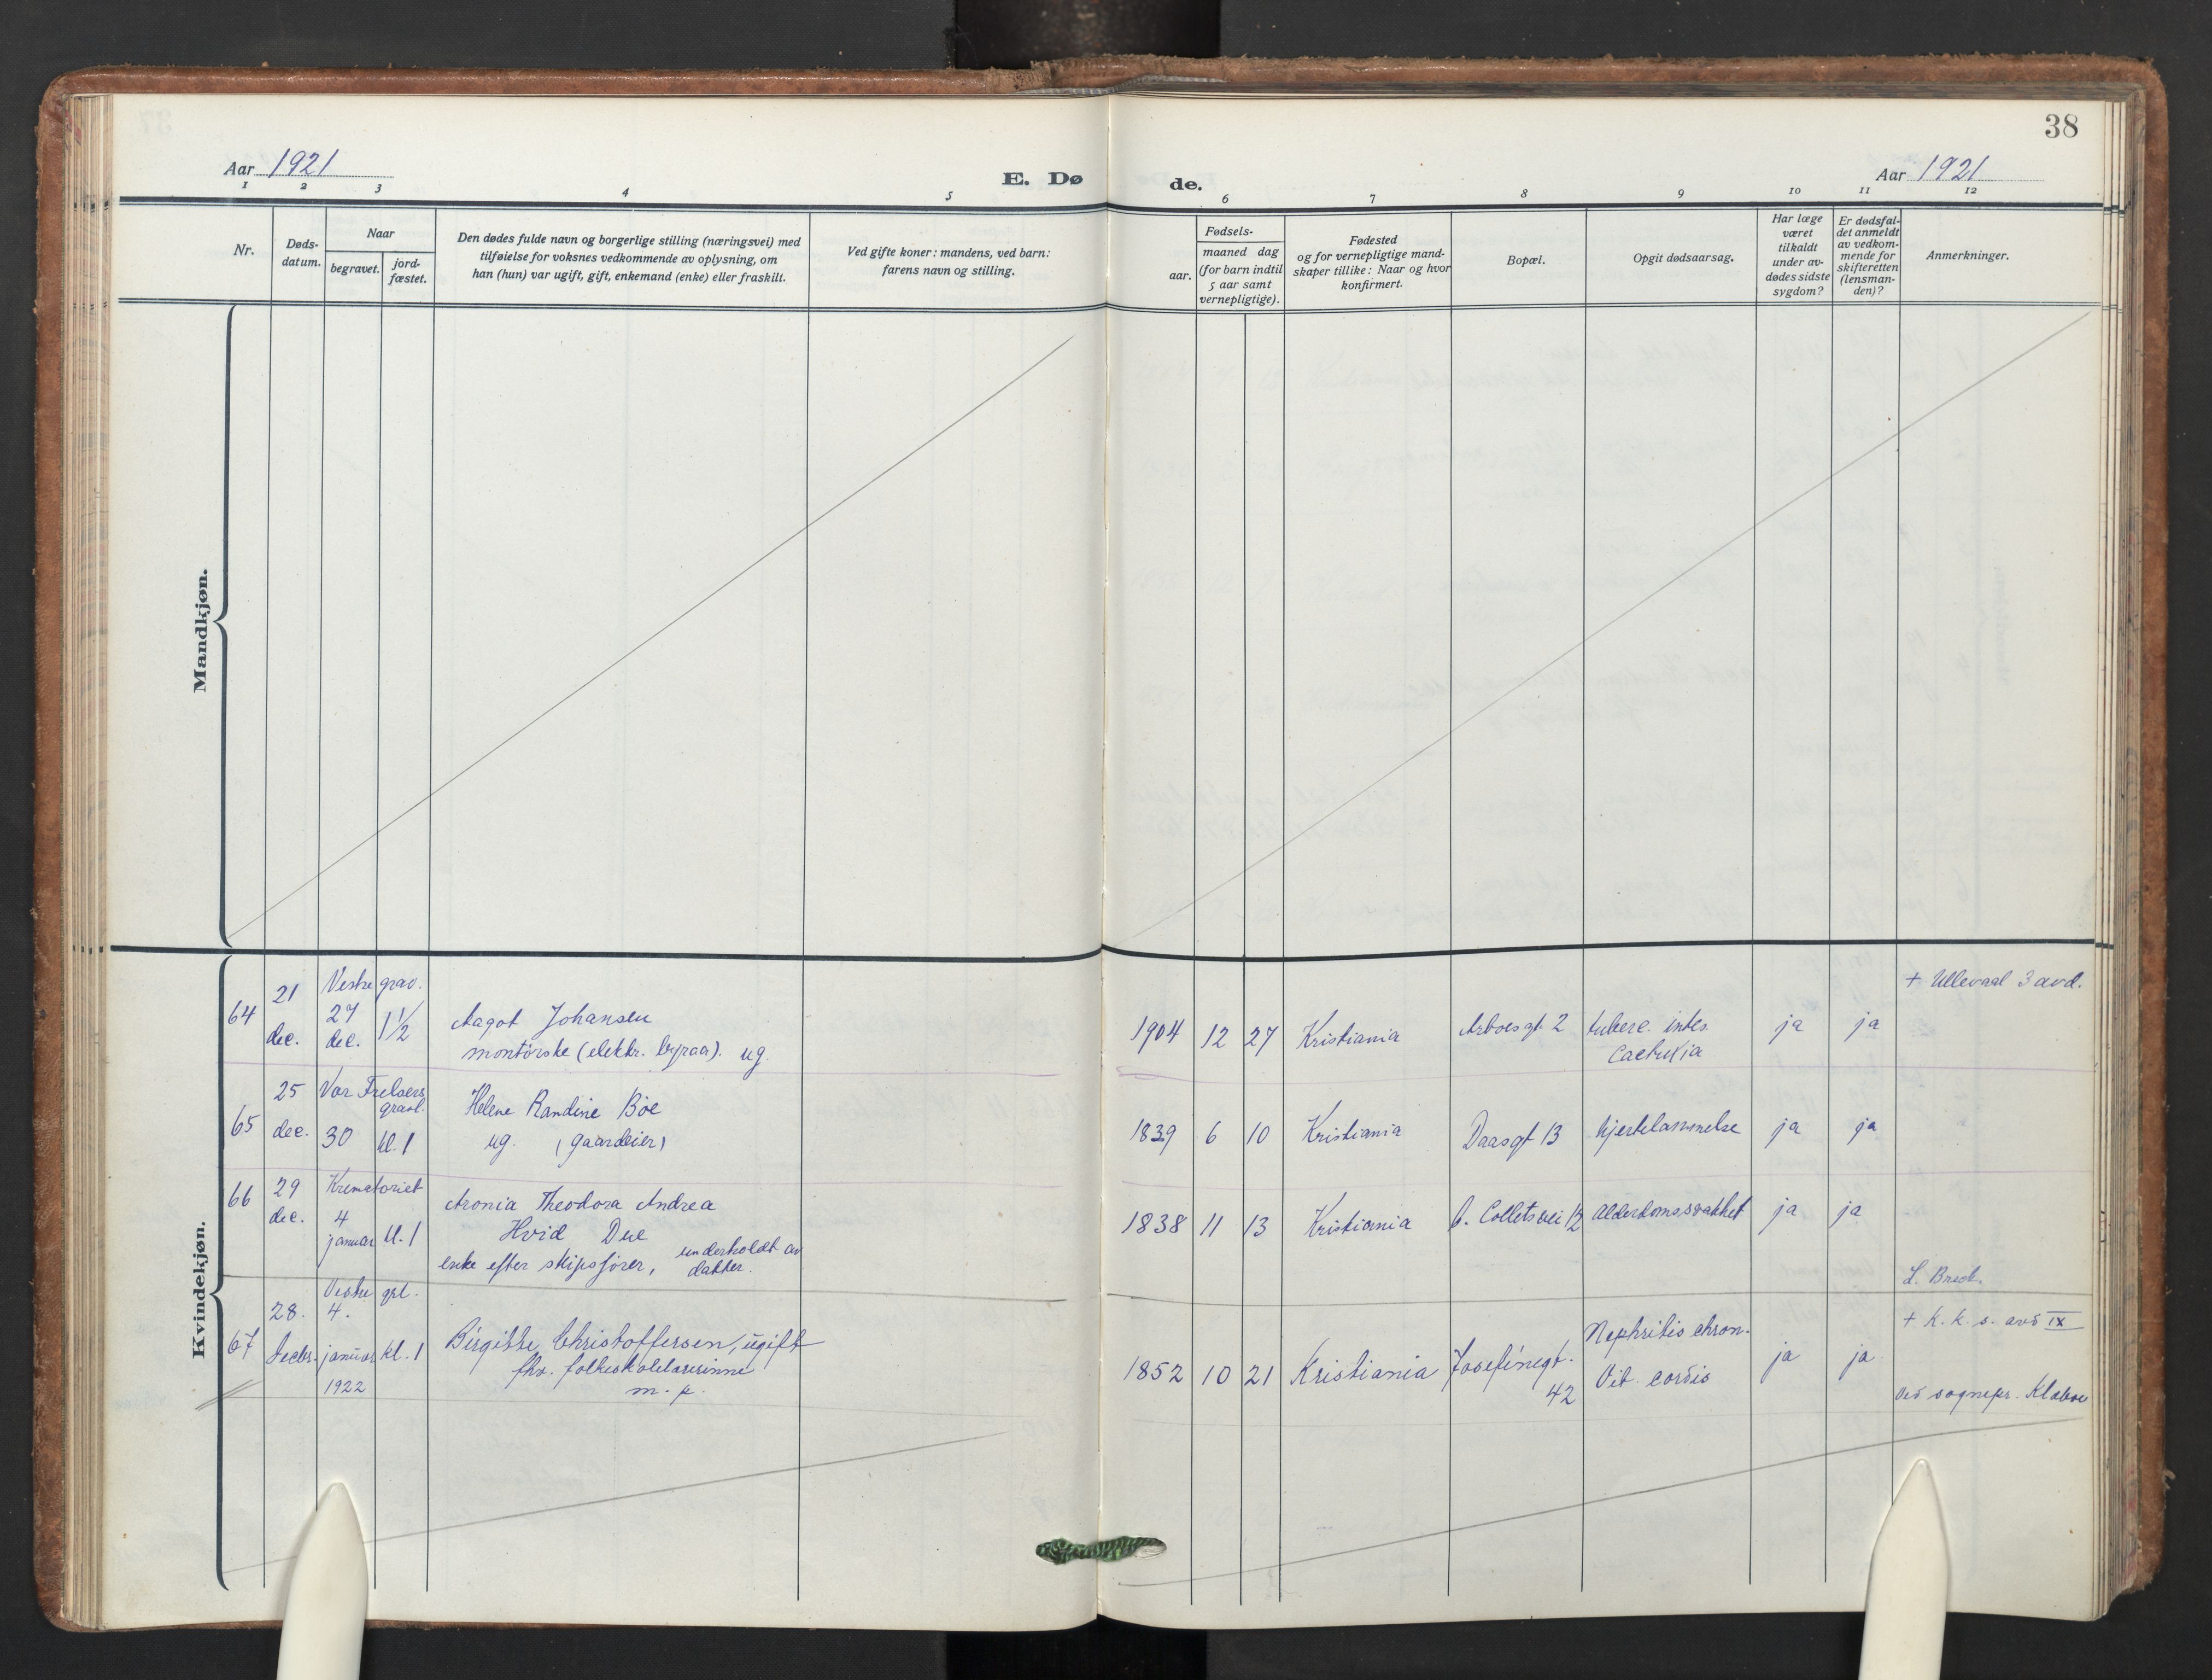 38
Aar 1921
E. Dø
de.
Aar 1921
1 2 3 4 5 6 7 8 9 10 11 12
Nr.
Døds-
datum.
Naar
begravet.
jord-
fæstet.
Den dødes fulde navn og borgerlige stilling (næringsvei) med
tilføielse for voksnes vedkommende av oplysning, om
han (hun) var ugift, gift, enkemand (enke) eller fraskilt.
Ved gifte koner: mandens, ved barn:
farens navn og stilling.
Fødsels-
aar.
maaned dag
(for barn indtil
5 aar samt
vernepligtige).
Fødested
og for vernepligtige mand-
skaper tillike: Naar og hvor
konfirmert.
Bopæl.
Opgit dødsaarsag.
Har læge
været
tilkaldt
under av-
dødes sidste
sygdom?
Er dødsfal-
det anmeldt
av vedkom-
mende for
skifteretten
(lensman-
den)?
Anmerkninger.
Mandkjøn.
Kvindekjøn.
64
21
dec.
Vestre grav.
27
dec.
1 1/2
Aagot Johansen
montørske (elektr. byraa). ug.
1904 12 27 Kristiania
Arboesgt. 2
tuberc. intes.
ja ja
+ Ullevaal 3 avd.
65
25
dec.
Vor Frelsers
gravl.
30 kl. 1
Helene Randine Böe
ug. (gaardeier)
1839 6 10 Kristiania
Daasgt 13
hjertelammelse
ja ja
66
29
dec.
Krematoriet
4
januar kl. 1
Aronia Theodora Andrea
Hvid Due
enke efter skipsfører, underholdt av
datter.
1838 11 13 Kristiania
C. Collets vei 12
Alderdomssvakhet
ja ja
67
28.
Decbr.
Vestre grl.
4.
januar kl. 1
1922
Birgitte Christoffersen, ugift
fhv. folkeskolelærerinne
m. p.
1852 10 21 Kristiania
Josefinegt.
42
Nephritis chron.
Vit. cordis
ja ja
+ K. k. s. avd IX
ved sognepr.